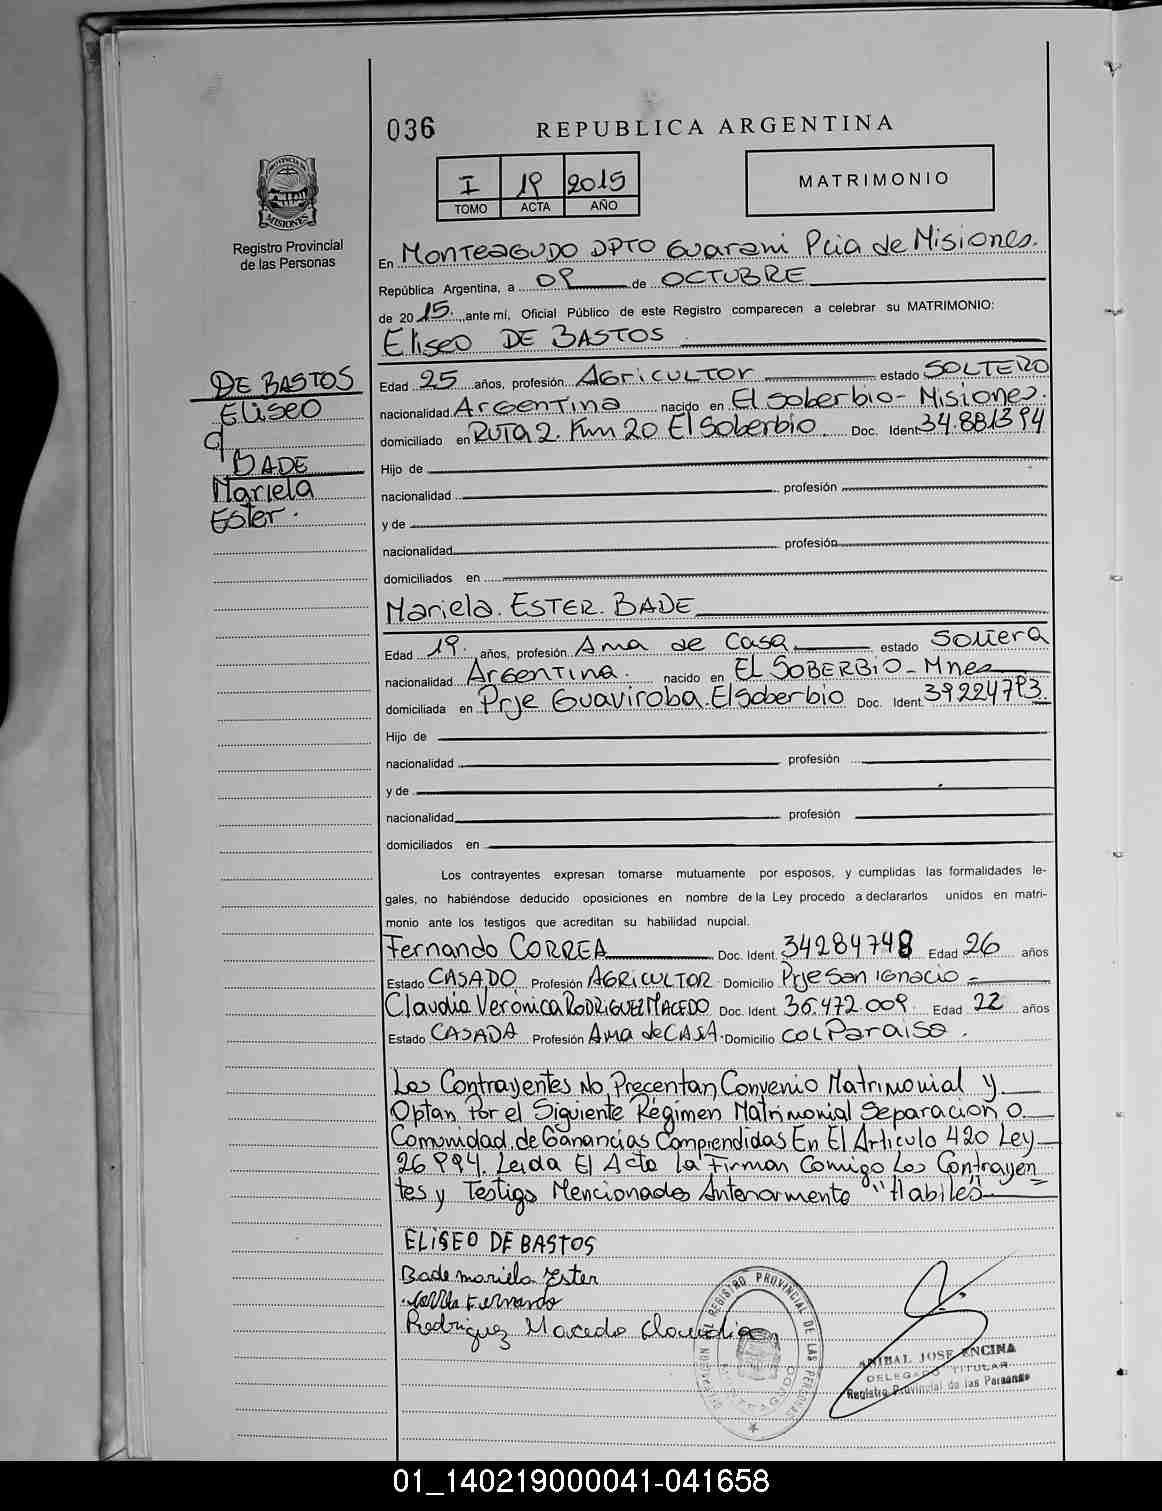 036
REPUBLICA ARGENTINA
I 19 2015
TOMO ACTA AÑO
MATRIMONIO
PROVINCIA DE
MISIONES
Registro Provincial
de las Personas
En MONTEAGUDO DPTO Guarani Pcia de Misiones.
República Argentina, a 09 de OCTUBRE
de 2015. ante mí, Oficial Público de este Registro comparecen a celebrar su MATRIMONIO:
Eliseo DE BASTOS
DE BASTOS
Eliseo
q
BADE
Mariela
Ester.
Edad 25 años, profesión AGRICULTOR estado SOLTERO
nacionalidad ArGENTINA nacido en El Soberbio - Misiones.
domiciliado en RUTA 2. Km 20 El Soberbio Doc. Ident. 34.881394
Hijo de
nacionalidad profesión
y de
nacionalidad profesión
domiciliados en
Mariela. ESTER. BADE
Edad 19. años, profesión Ama de Casa estado Soltera
nacionalidad ArGENTINA. nacido en EL SOBERBIO - Mnes
domiciliada en Prje Guaviroba. El Soberbio Doc. Ident. 39224793.
Hijo de
nacionalidad profesión
y de
nacionalidad profesión
domiciliados en
Los contrayentes expresan tomarse mutuamente por esposos, y cumplidas las formalidades le-
gales, no habiéndose deducido oposiciones en nombre de la Ley procedo a declararlos unidos en matri-
monio ante los testigos que acreditan su habilidad nupcial.
Fernando CORREA Doc. Ident. 34284748 Edad 26 años
Estado CASADO Profesión AGRICULTOR Domicilio Prje San Ignacio
Claudia Veronica RODRIGUEZ MACEDO Doc. Ident. 36.472.009. Edad 22 años
Estado CASADA Profesión Ama de CASA. Domicilio Col Paraiso.
Los Contrayentes No Precentan Convenio Matrimonial y
Optan Por el Siguiente Régimen Matrimonial Separacion o
Comunidad de Ganancias Comprendidas En El Articulo 420 Ley
26994. Leida El Acto La Firman Comigo Los Contrayen
tes y Testigo Mencionados Anteriormente "Habiles
ELISEO DE BASTOS
Bade mariela Ester
Correa Fernando
Rodriguez Macedo Claudia
REGISTRO PROVINCIAL DE LAS PERSONAS
MONTEAGUDO
ANIBAL JOSE ENCINA
DELEGADO TITULAR
Registro Provincial de las Personas
01_140219000041-041658